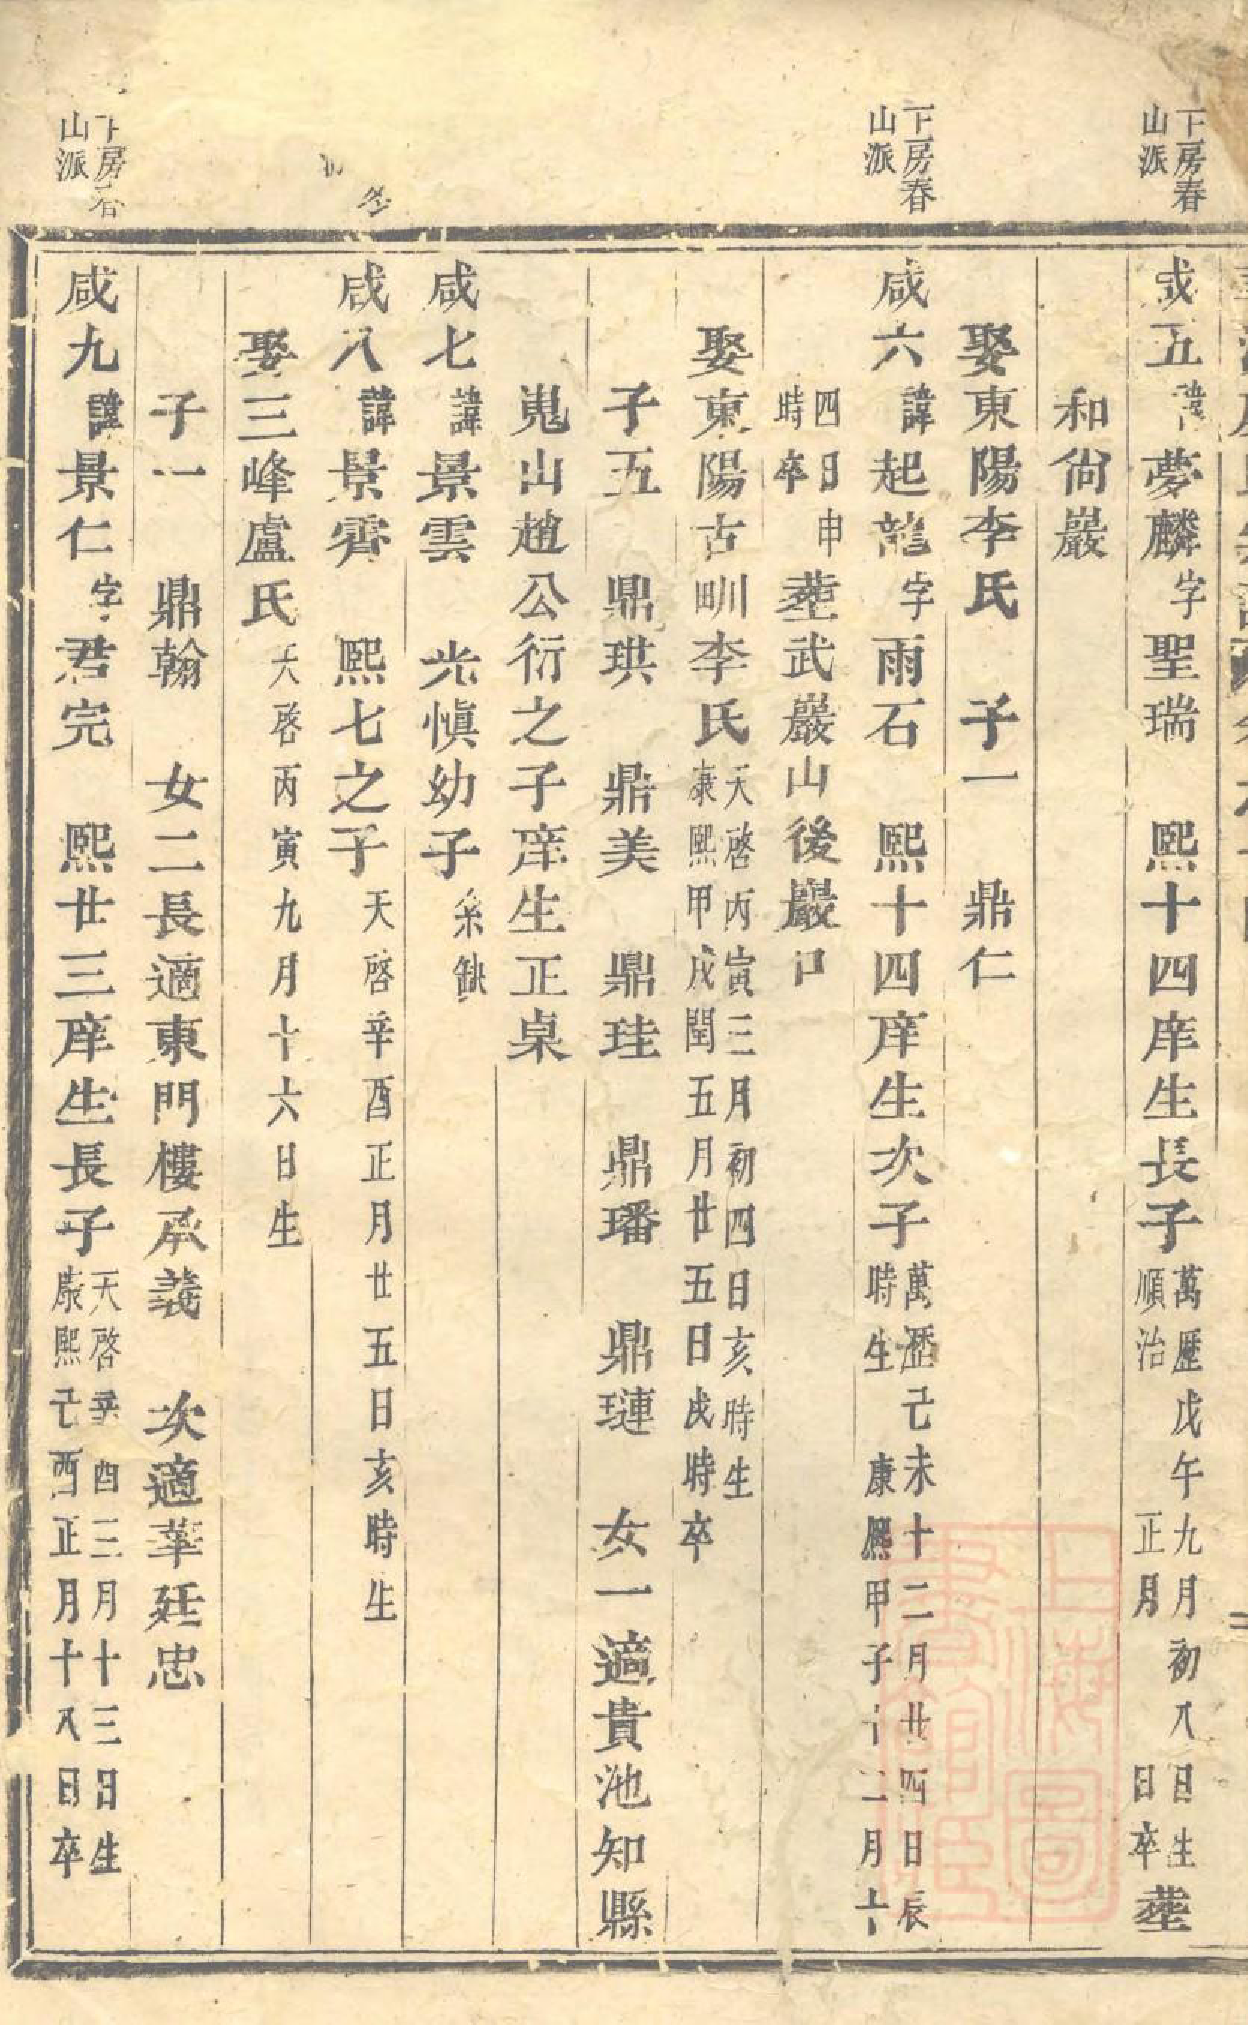 下房春
山派
咸五諱夢麟字聖瑞　熙十四庠生長子萬歷戊午九月初八日生
順治　正月　日卒葬
和尚巖
娶東陽李氏　子一　鼎仁
下房春
山派
咸六諱起龍字雨石　熙十四庠生次子萬歷己未十二月廿四日辰
時生　康熙甲子十二月十
四日申
時卒　葬武巖山後巖口
娶東陽古甽李氏天啓丙寅三月初四日亥時生
康熙甲戌閏五月廿五日戌時卒
子五　鼎珙　鼎美　鼎珪　鼎璠　鼎璉　女一適貴池知縣
嵬山趙公衍之子庠生正桌
咸七諱景雲　光慎幼子系缺
咸八諱景霽　熙七之子天啓辛酉正月廿五日亥時生
娶三峰盧氏天啓丙寅九月十六日生
子一　鼎翰　女二長適東門樓承義　次適華廷忠
下房春
山派
咸九諱景仁字君完　熙廿三庠生長子天啓辛酉三月十三日生
康熙己酉正月十八日卒